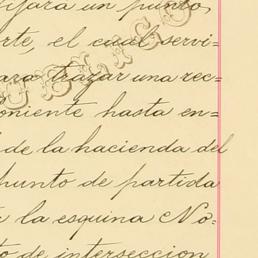 fijará un punto,
rte, el cual servi=
ara trazar una rec=
oniente hasta en=
de la hacienda del
punto de partida
la esquina No=
to de interseccion